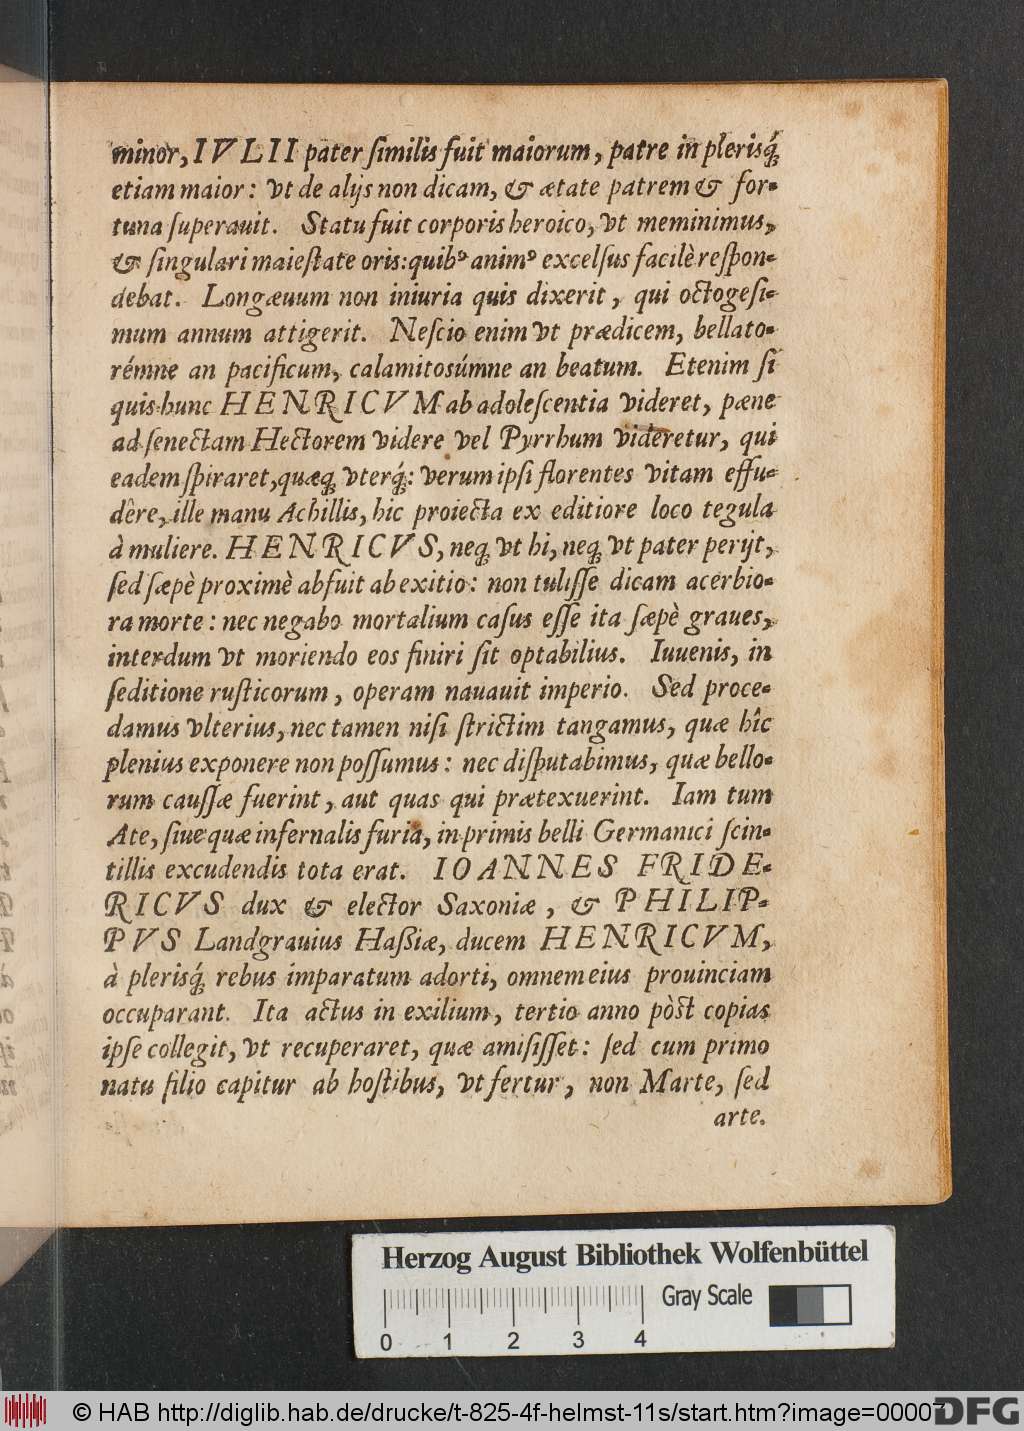 minor, IVLII pater ſimilis fuit maiorum, patre in pleriſq́;
etiam maior: vt de alijs non dicam, & ætate patrem & for-
tuna ſuperauit. Statu fuit corporis heroico, vt meminimus,
& ſingulari maieſtate oris: quibꝰ animꝰ excelſus facilè reſpon-
debat. Longæuum non iniuria quis dixerit, qui octogeſi-
mum annum attigerit. Neſcio enim vt prædicem, bellato-
rémne an pacificum, calamitosúmne an beatum. Etenim ſi
quis hunc HENRICVM ab adoleſcentia videret, pæne
ad ſenectam Hectorem videre vel Pyrrhum videretur, qui
eadem ſpiraret, quæq; vterq́;: verum ipſi florentes vitam effu-
dêre, ille manu Achillis, hic proiecta ex editiore loco tegula
à muliere. HENRICVS, neq; vt hi, neq; vt pater perijt,
ſed ſæpè proximè abfuit ab exitio: non tuliſſe dicam acerbio-
ra morte: nec negabo mortalium caſus eſſe ita ſæpè graues,
interdum vt moriendo eos finiri ſit optabilius. Iuuenis, in
ſeditione ruſticorum, operam nauauit imperio. Sed proce-
damus vlterius, nec tamen niſi ſtrictim tangamus, quæ hîc
plenius exponere non poſſumus: nec diſputabimus, quæ bello-
rum cauſſæ fuerint, aut quas qui prætexuerint. Iam tum
Ate, ſiue quæ infernalis furia, in primis belli Germanici ſcin-
tillis excudendis tota erat. IOANNES FRIDE-
RICVS dux & elector Saxoniæ, & PHILIP-
PVS Landgrauius Haßiæ, ducem HENRICVM,
à pleriſq́; rebus imparatum adorti, omnem eius prouinciam
occuparant. Ita actus in exilium, tertio anno pòst copias
ipſe collegit, vt recuperaret, quæ amiſiſſet: ſed cum primo
natu filio capitur ab hoſtibus, vt fertur, non Marte, ſed
arte.
Herzog August Bibliothek Wolfenbüttel
Gray Scale
0 1 2 3 4
© HAB http://diglib.hab.de/drucke/t-825-4f-helmst-11s/start.htm?image=00007
DFG